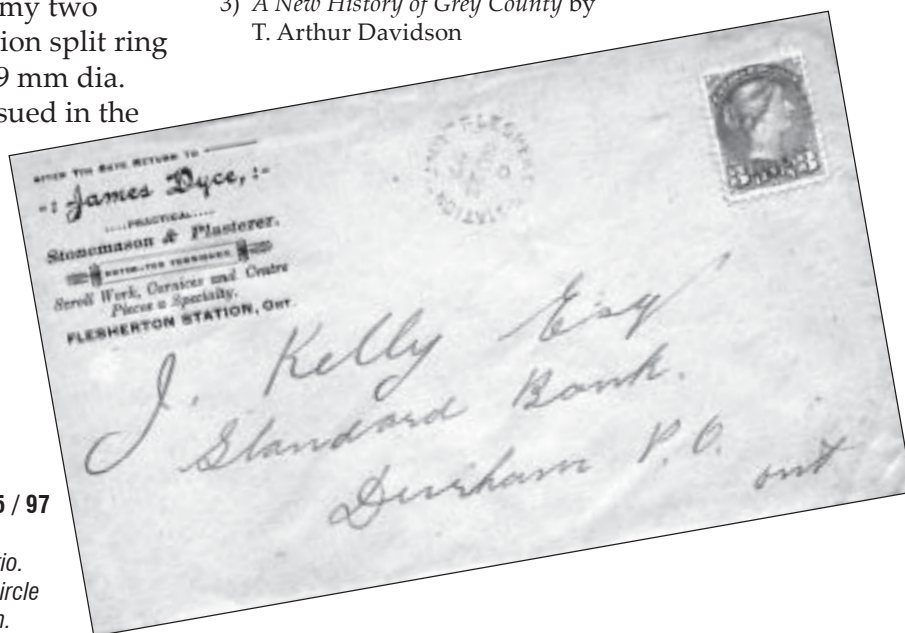 my two
ion split ring
9 mm dia.
sued in the
3) A New History of Grey County by
T. Arthur Davidson
RETURN TO
-: James Dyce, :-
....PRACTICAL.....
Stonemason & Plasterer.
Scroll Work, Cornices and Centre
Pieces a Specialty.
FLESHERTON STATION, ONT.
STATION
3
J. Kelly Esq
Standard Bank.
Durham P.O.
ont
5 / 97
io.
ircle
n.